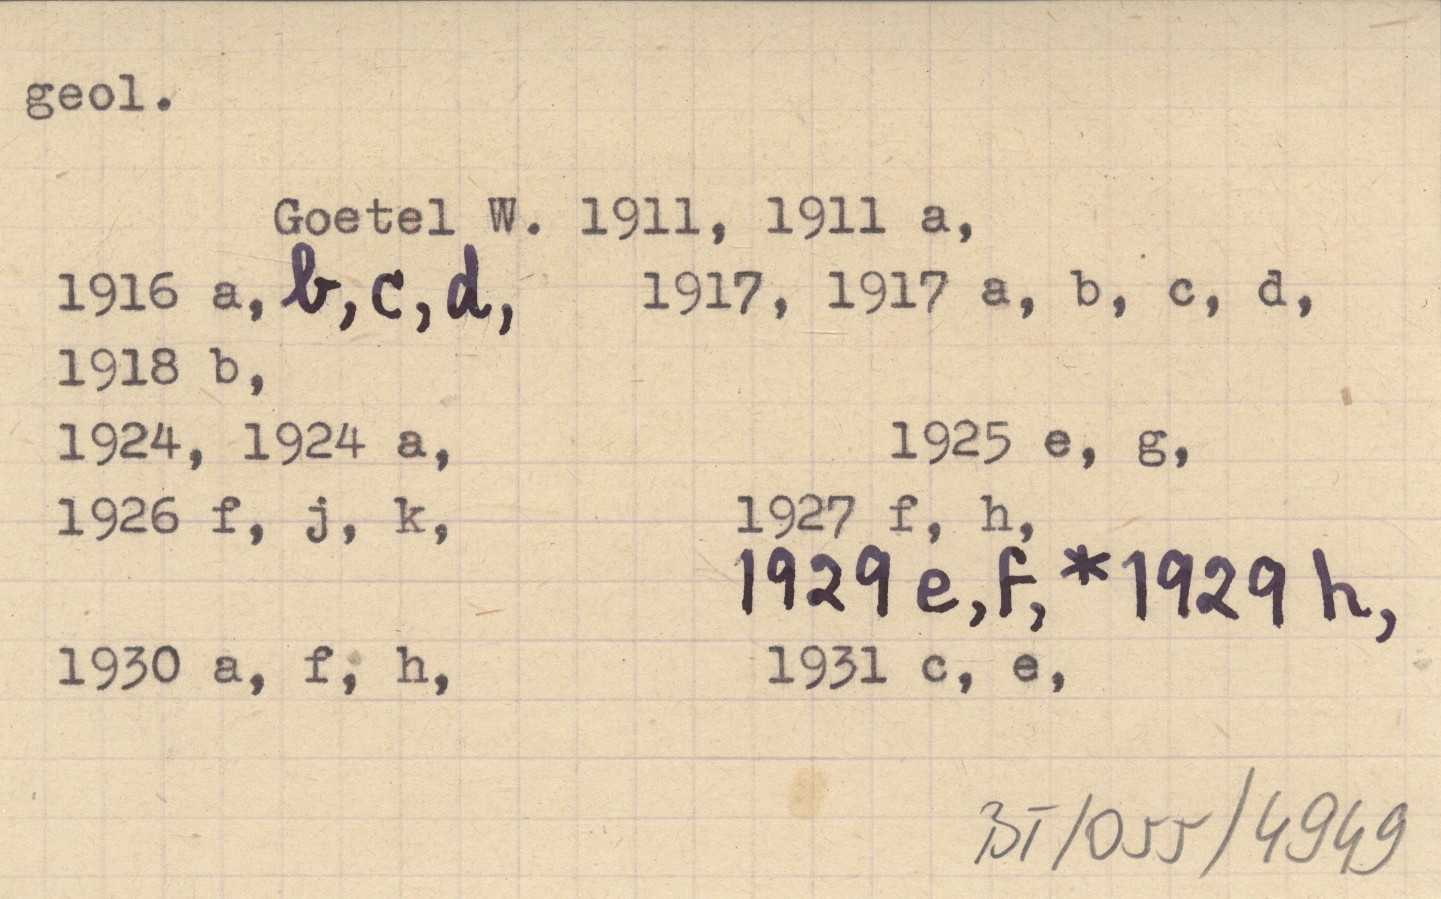 geol.
Goetel W. 1911, 1911 a,
1916 a, b, c, d, 1917, 1917 a, b, c, d,
1918 b,
1924, 1924 a, 1925 e, g,
1926 f, j, k, 1927 f, h,
1929 e, f, *1929 h,
1930 a, f, h, 1931 c, e,
BI/055/4949